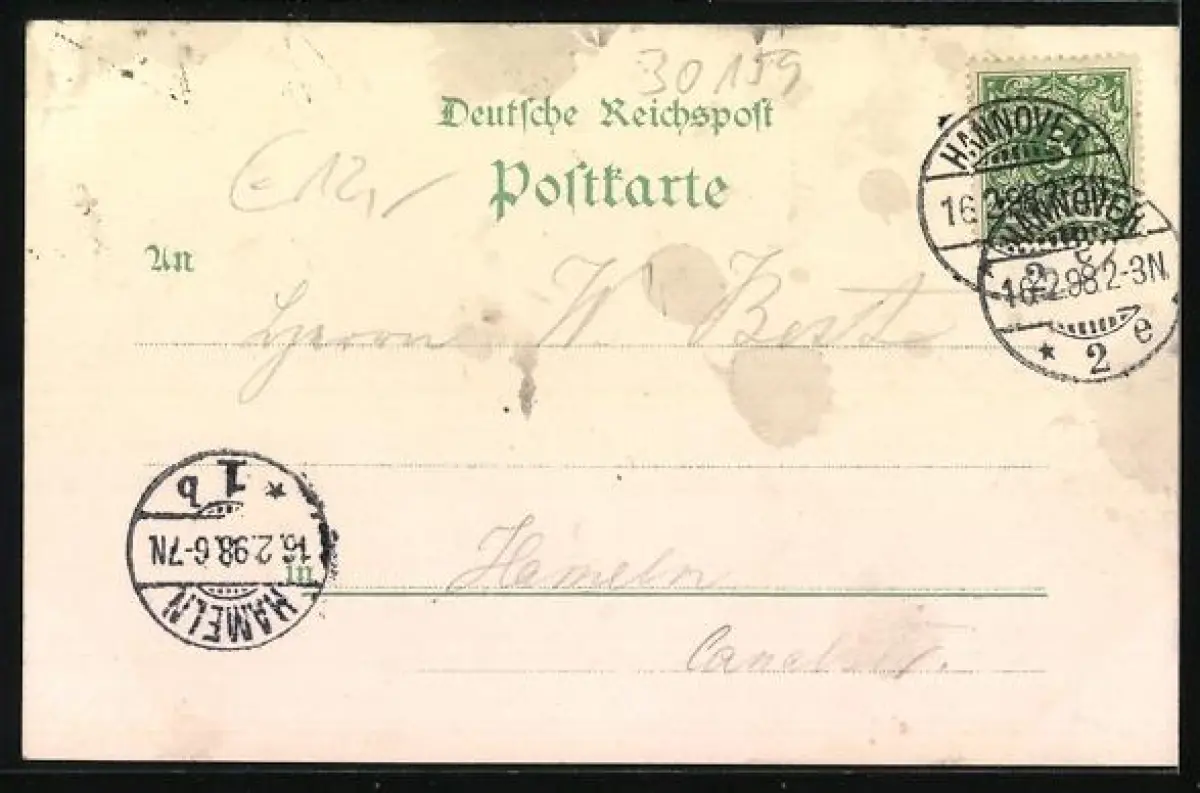 30159
Deutsche Reichspost
Postkarte
HANNOVER
16.2.98.2-3N
2 e
HANNOVER
16.2.98.2-3N
* 2 e
An
Herrn W. Best
1 b *
16.2.98.6-7N
HAMELN
in Hameln